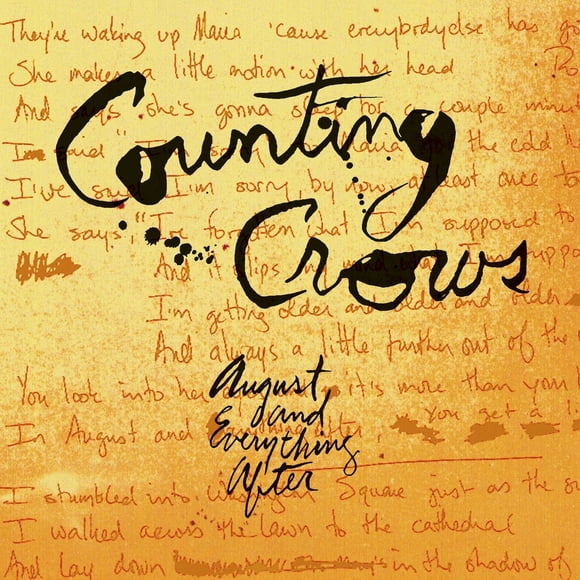 They're waking up Maria 'cause everybodyelse has go
She makes a little motion with her head
And says she's gonna sleep for a couple minu
Counting
Crows
I said
the cold
I've I'm sorry, by now, at least once to
She says, "I've forgotten what I'm supposed to
And it slips my mind what I'm suppo
I'm getting older and older and older
And always a little further out of the
August
and
Everything
After
You look into her it's more than you
In August and after You get a
I stumbled into Square just as the su
I walked across the lawn to the cathedral
And lay down in the shadow of